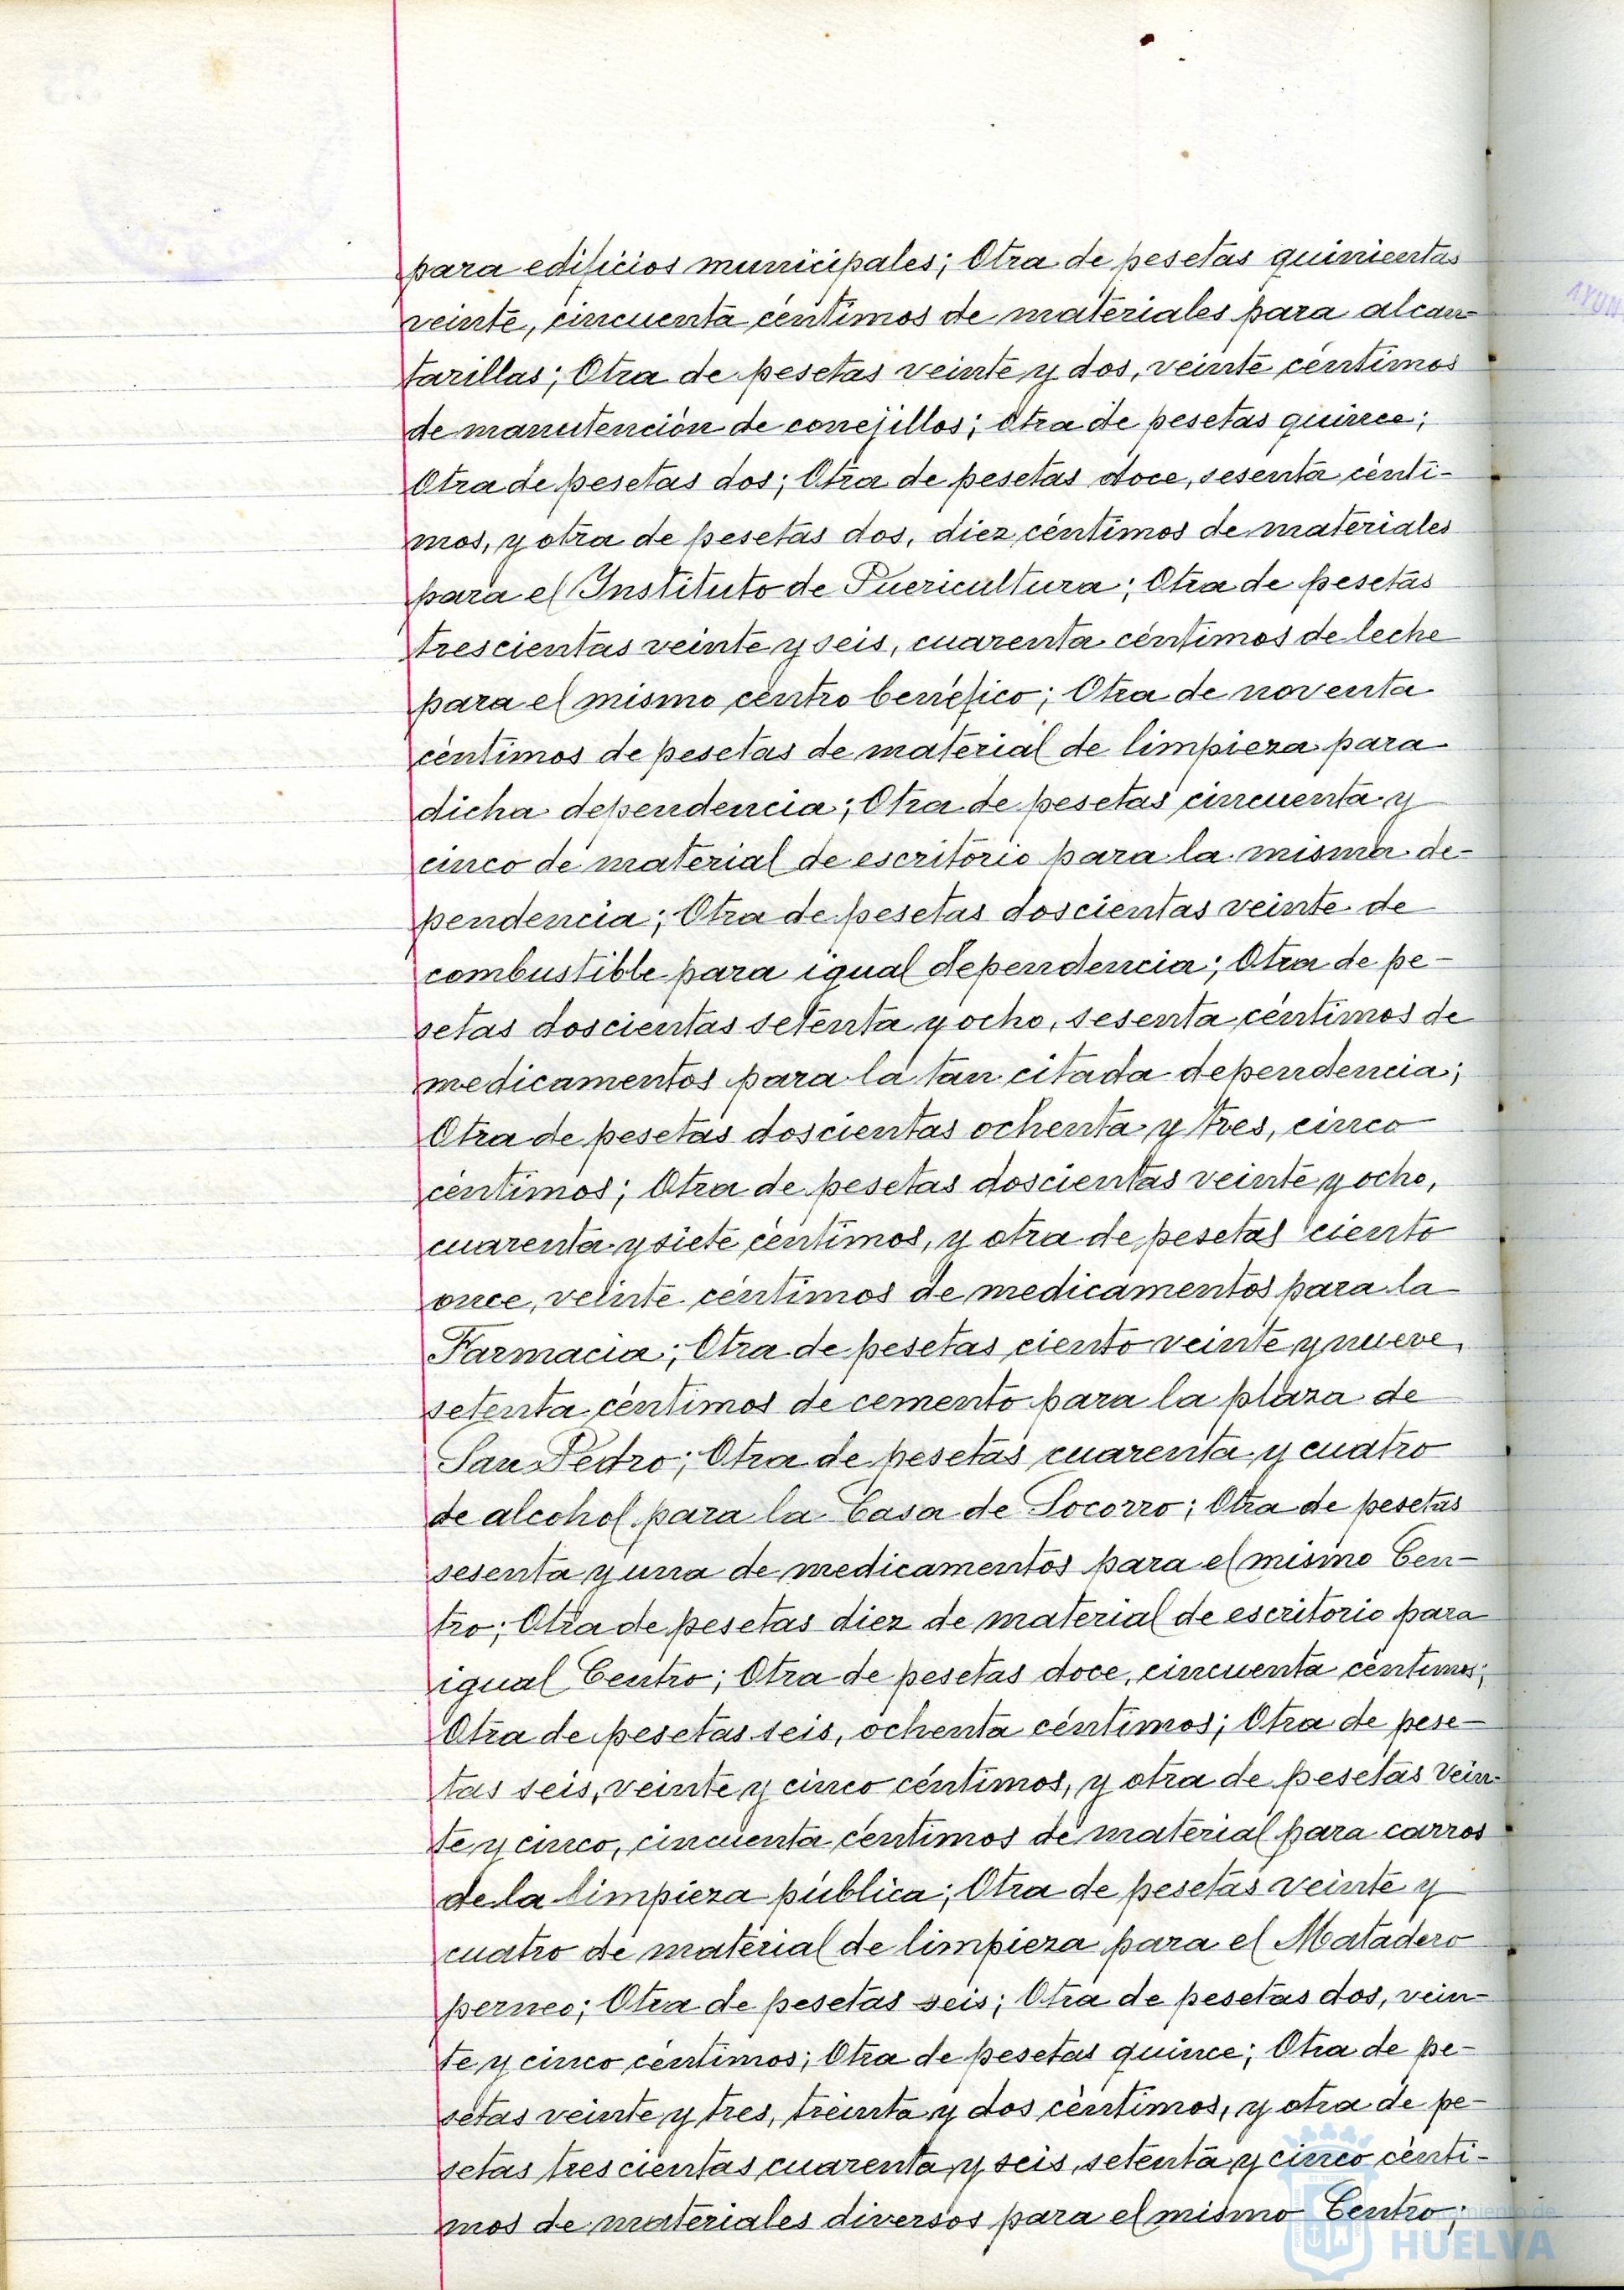 para edificios municipales; Otra de pesetas quinientas
veinte, cincuenta céntimos de materiales para alcan-
tarillas; Otra de pesetas veinte y dos, veinte céntimos
de manutención de conejillos; Otra de pesetas quince;
Otra de pesetas dos; Otra de pesetas doce, sesenta cénti-
mos, y otra de pesetas dos, diez céntimos de materiales
para el Instituto de Puericultura; Otra de pesetas
trescientas veinte y seis, cuarenta céntimos de leche
para el mismo centro benéfico; Otra de noventa
céntimos de pesetas de material de limpieza para
dicha dependencia; Otra de pesetas cincuenta y
cinco de material de escritorio para la misma de-
pendencia; Otra de pesetas doscientas veinte de
combustible para igual dependencia; Otra de pe-
setas doscientas setenta y ocho, sesenta céntimos de
medicamentos para la tan citada dependencia;
Otra de pesetas doscientas ochenta y tres, cinco
céntimos; Otra de pesetas doscientas veinte y ocho,
cuarenta y siete céntimos, y otra de pesetas ciento
once, veinte céntimos de medicamentos para la
Farmacia; Otra de pesetas ciento veinte y nueve,
setenta céntimos de cemento para la plaza de
San Pedro; Otra de pesetas cuarenta y cuatro
de alcohol para la Casa de Socorro; Otra de pesetas
sesenta y una de medicamentos para el mismo Cen-
tro; Otra de pesetas diez de material de escritorio para
igual Centro; Otra de pesetas doce, cincuenta céntimos;
Otra de pesetas seis, ochenta céntimos; Otra de pese-
tas seis, veinte y cinco céntimos, y otra de pesetas vein-
te y cinco, cincuenta céntimos de material para carros
de la limpieza pública; Otra de pesetas veinte y
cuatro de material de limpieza para el Matadero
perneo; Otra de pesetas seis; Otra de pesetas dos, vein-
te y cinco céntimos; Otra de pesetas quince; Otra de pe-
setas veinte y tres, treinta y dos céntimos, y otra de pe-
setas trescientas cuarenta y seis, setenta y cinco cénti-
mos de materiales diversos para el mismo Centro;
HUELVA